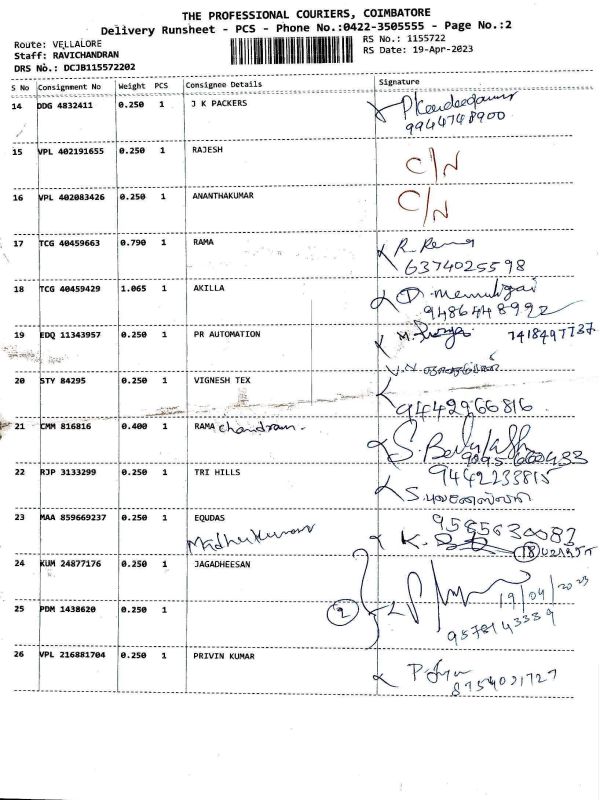 THE PROFESSIONAL COURIERS, COIMBATORE
Delivery Runsheet - PCS - Phone No.:0422-3505555 - Page No.:2
Route: VELLALORE RS No.: 1155722
Staff: RAVICHANDRAN RS Date: 19-Apr-2023
DRS No.: DCJB115572202
S No Consignment No Weight PCS Consignee Details Signature
14 DDG 4832411 0.250 1 J K PACKERS
9944748900
15 VPL 402191655 0.250 1 RAJESH C/N
16 VPL 402083426 0.250 1 ANANTHAKUMAR C/N
17 TCG 40459663 0.790 1 RAMA R. Rema
6374025598
18 TCG 40459429 1.065 1 AKILLA
9486448992
19 EDQ 11343957 0.250 1 PR AUTOMATION 7418497737
20 STY 84295 0.250 1 VIGNESH TEX
9442966816
21 CMM 816816 0.400 1 RAMA chandran.
22 RJP 3133299 0.250 1 TRI HILLS 9442233815
23 MAA 859669237 0.250 1 EQUDAS 9585630083
Madhukumar
24 KUM 24877176 0.250 1 JAGADHEESAN
19/04/2023
25 PDM 1438620 0.250 1 2
9578143339
26 VPL 216881704 0.250 1 PRIVIN KUMAR
8754001727